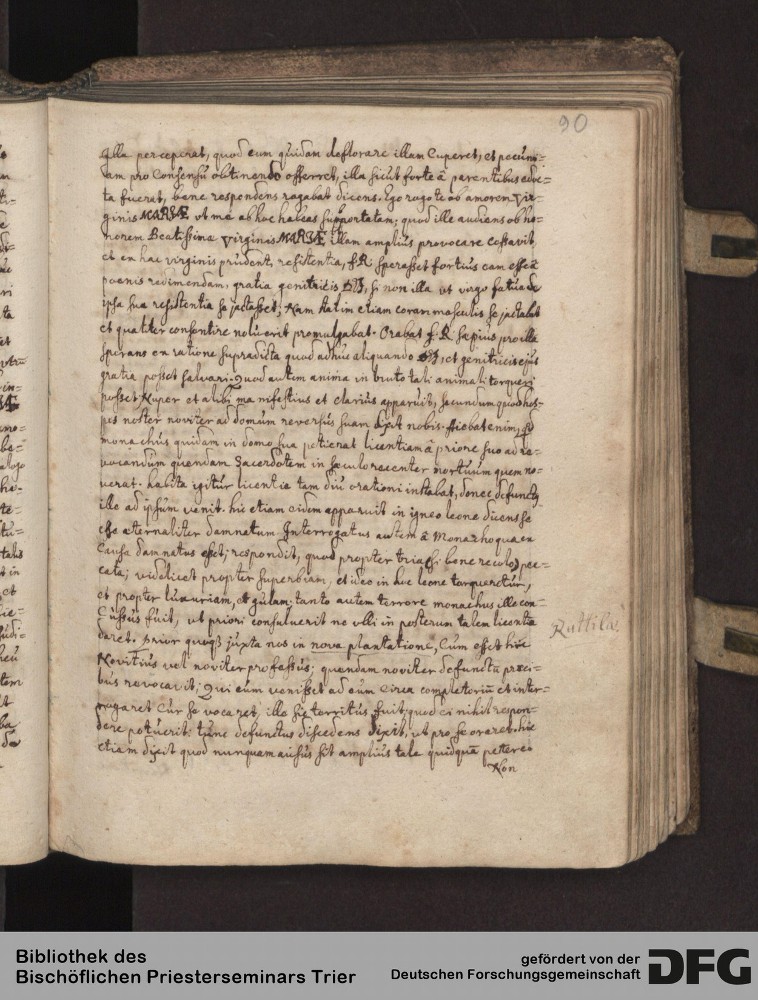 90
Illa perceperat, quod eum quidam deflorare illam cuperet, et pecuni=
am pro consensu obtinendo offerret, illa sicut forte â parentibus edoc=
ta fuerat, bene respondens rogabat dicens. Ego rogo te ob amorem vir=
ginis MARIÆ ut me ab hoc habeas supportatam; quod ille audiens ob ho=
norem Beatissimæ virginis MARIÆ illam amplius provocare cessavit,
et ex hac virginis prudenti resistentia, f. R. sperasset fortius eam esse â
poenis redimendam, gratia genitricis si non illa ut virgo fatua de
ipsa sua resistentia se jactasset; Nam statim etiam coram masculis se jactabat
et qualiter consentire noluerit promulgabat. Orabat f. R. sæpius pro illa
sperans ex ratione supradicta quod adhuc aliquando et genitricis ejus
gratia posset salvari. Quod autem anima in bruto tali animali torqueri
posset Nuper et alibi manifestius et clarius apparuit, secundum quod hos=
pes noster noviter ad domum reversus suam dixit nobis. aiebat enim, qd
monachus quidam in domo sua petierat licentiam â priore suo ad re=
vocandum quendam Sacerdotem in sæculo recenter mortuum quem no=
verat. habita igitur licentia tam diu orationi instabat, donec defunctq
ille ad ipsum venit. hic etiam eidem apparuit in igneo leone dicens se
esse æternaliter damnatum. Interrogatus autem â Monacho quam
causa damnatus esset; respondit, quod propter tria (si bene recolo) pec=
cata; videlicet propter superbiam, et ideo in hoc leone torqueretur,
et propter luxuriam, et gulam; tanto autem terrore monachus ille con=
cussus fuit, ut priori consuluerit ne ulli in posterum talem licentia
daret. Prior quoq juxta nos in nova plantatione, Cum esset hic
Novitius vel noviter professus; quendam noviter defunctū præci=
bus revocavit; Qui cum venisset ad eum circa completoriū et inter=
rogaret cur se vocaret, ille sic territus fuit, quod ei nihil respon=
dere potuerit: tunc defunctus discedens dixit, ut pro se oraret. hic
etiam dixit quod nunquam ausus sit amplius tale quidquā petere
Non
Ruttila
Bibliothek des
Bischöflichen Priesterseminars Trier
gefördert von der
Deutschen Forschungsgemeinschaft
DFG